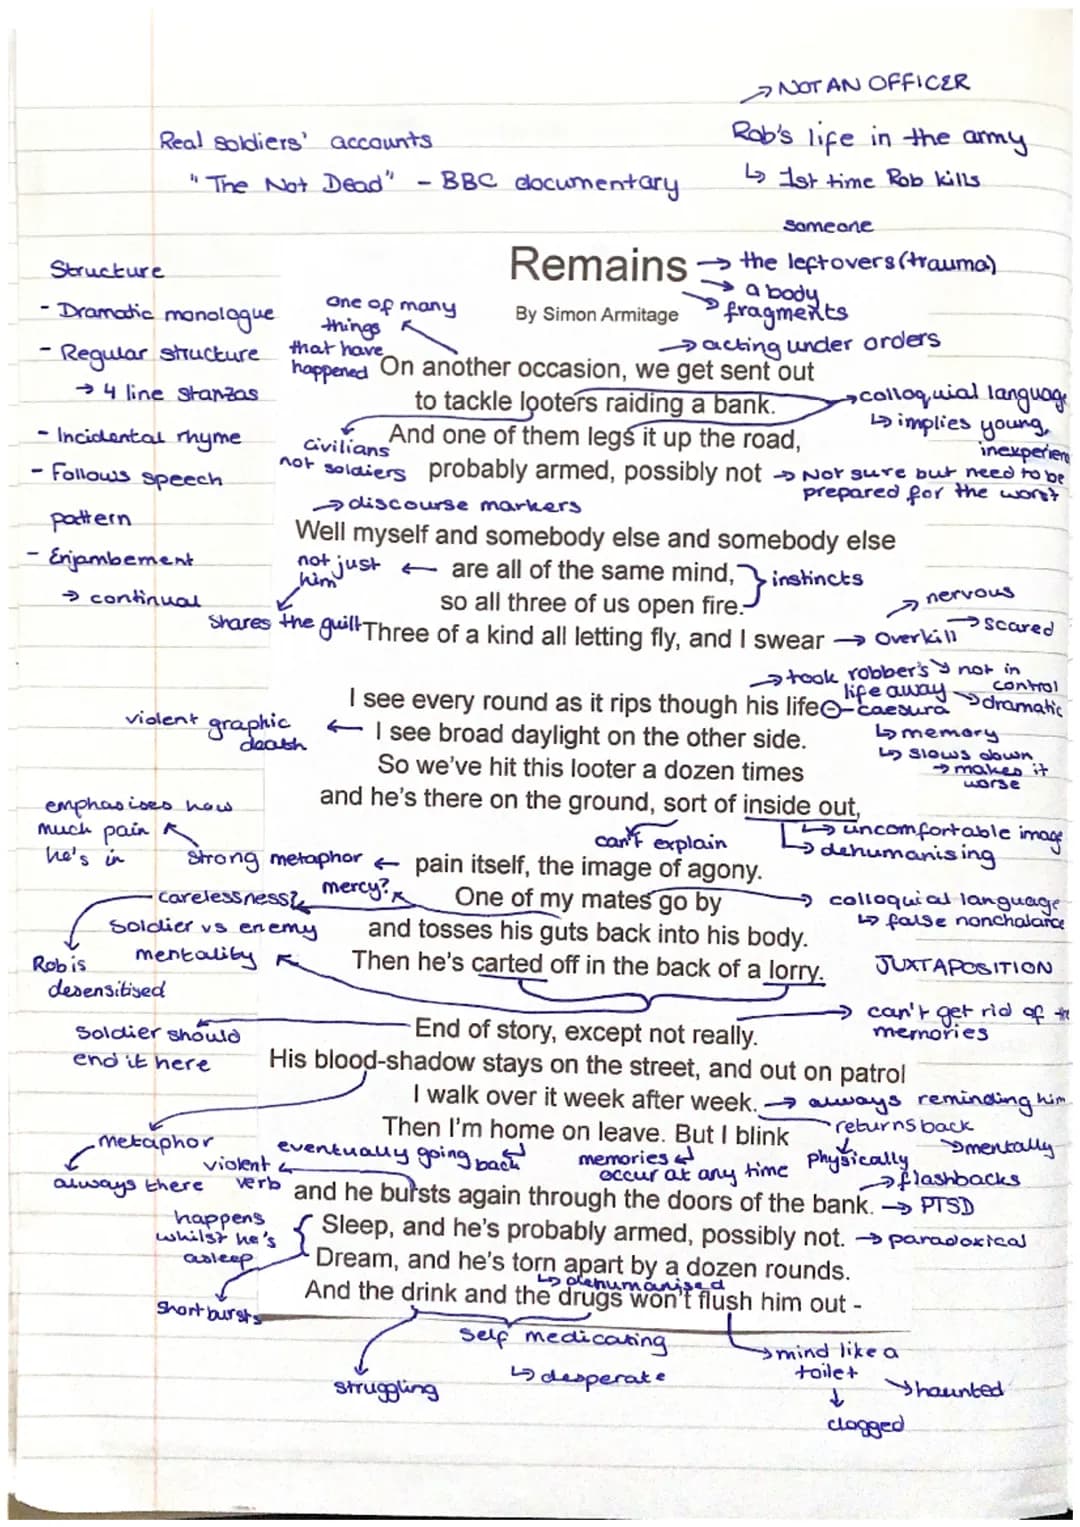 → NOT AN OFFICER
Real soldiers' accounts
Rob's life in the army
"The Not Dead" - BBC documentary
↳ 1st time Rob kills
someone
Remains → the leftovers (trauma)
→ a body
→ fragments
By Simon Armitage
Structure
- Dramatic monologue
- Regular structure
→ 4 line stanzas
- Incidental rhyme
- Follows speech
pattern
- Enjambement
→ continual
one of many
things
that have
happened
→ acting under orders
On another occasion, we get sent out
to tackle looters raiding a bank.
→ colloquial language
↳ implies young,
And one of them legs it up the road,
civilians
not soldiers
probably armed, possibly not → Not sure but need to be
prepared for the worst
→ discourse markers
Well myself and somebody else and somebody else
not just
him
← are all of the same mind,
} instincts
so all three of us open fire.
shares the guilt
Three of a kind all letting fly, and I swear → overkill
→ nervous
→ scared
→ not in
control
→ dramatic
→ took robber's
life away
I see every round as it rips though his life - caesura
↳ memory
↳ slows down
→ makes it
worse
violent graphic
death
← I see broad daylight on the other side.
So we've hit this looter a dozen times
and he's there on the ground, sort of inside out,
can't explain
↳ uncomfortable image
↳ dehumanising
emphasises how
much pain
he's in
strong metaphor ← pain itself, the image of agony.
mercy?
carelessness?
One of my mates go by
→ colloquial language
↳ false nonchalance
and tosses his guts back into his body.
soldier vs enemy
mentality
Then he's carted off in the back of a lorry.
JUXTAPOSITION
Rob is
desensitised
→ can't get rid of the
memories
Soldier should
end it here
End of story, except not really.
His blood-shadow stays on the street, and out on patrol
I walk over it week after week. → always reminding him
returns back
→ mentally
physically
Then I'm home on leave. But I blink
metaphor
always there
eventually going back
memories
occur at any time
→ flashbacks
violent
verb
and he bursts again through the doors of the bank. → PTSD
happens
whilst he's
asleep
Sleep, and he's probably armed, possibly not. → paradoxical
Dream, and he's torn apart by a dozen rounds.
↳ dehumanised
short bursts
And the drink and the drugs won't flush him out -
self medicating
↳ desperate
struggling
→ mind like a
toilet
↓
clogged
→ haunted